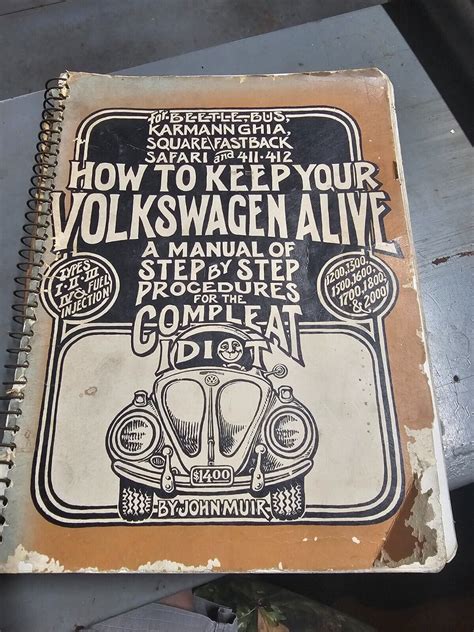 for BEETLE, BUS,
KARMANN GHIA,
SQUARE/FASTBACK
SAFARI and 411·412
HOW TO KEEP YOUR
VOLKSWAGEN ALIVE
A MANUAL OF
STEP BY STEP
PROCEDURES
FOR THE
COMPLEAT
IDIOT
TYPES
I·II·III
IV & FUEL
INJECTION!
1200, 1300,
1500, 1600,
1700, 1800,
& 2000
VW
$14.00
-BY JOHN MUIR-